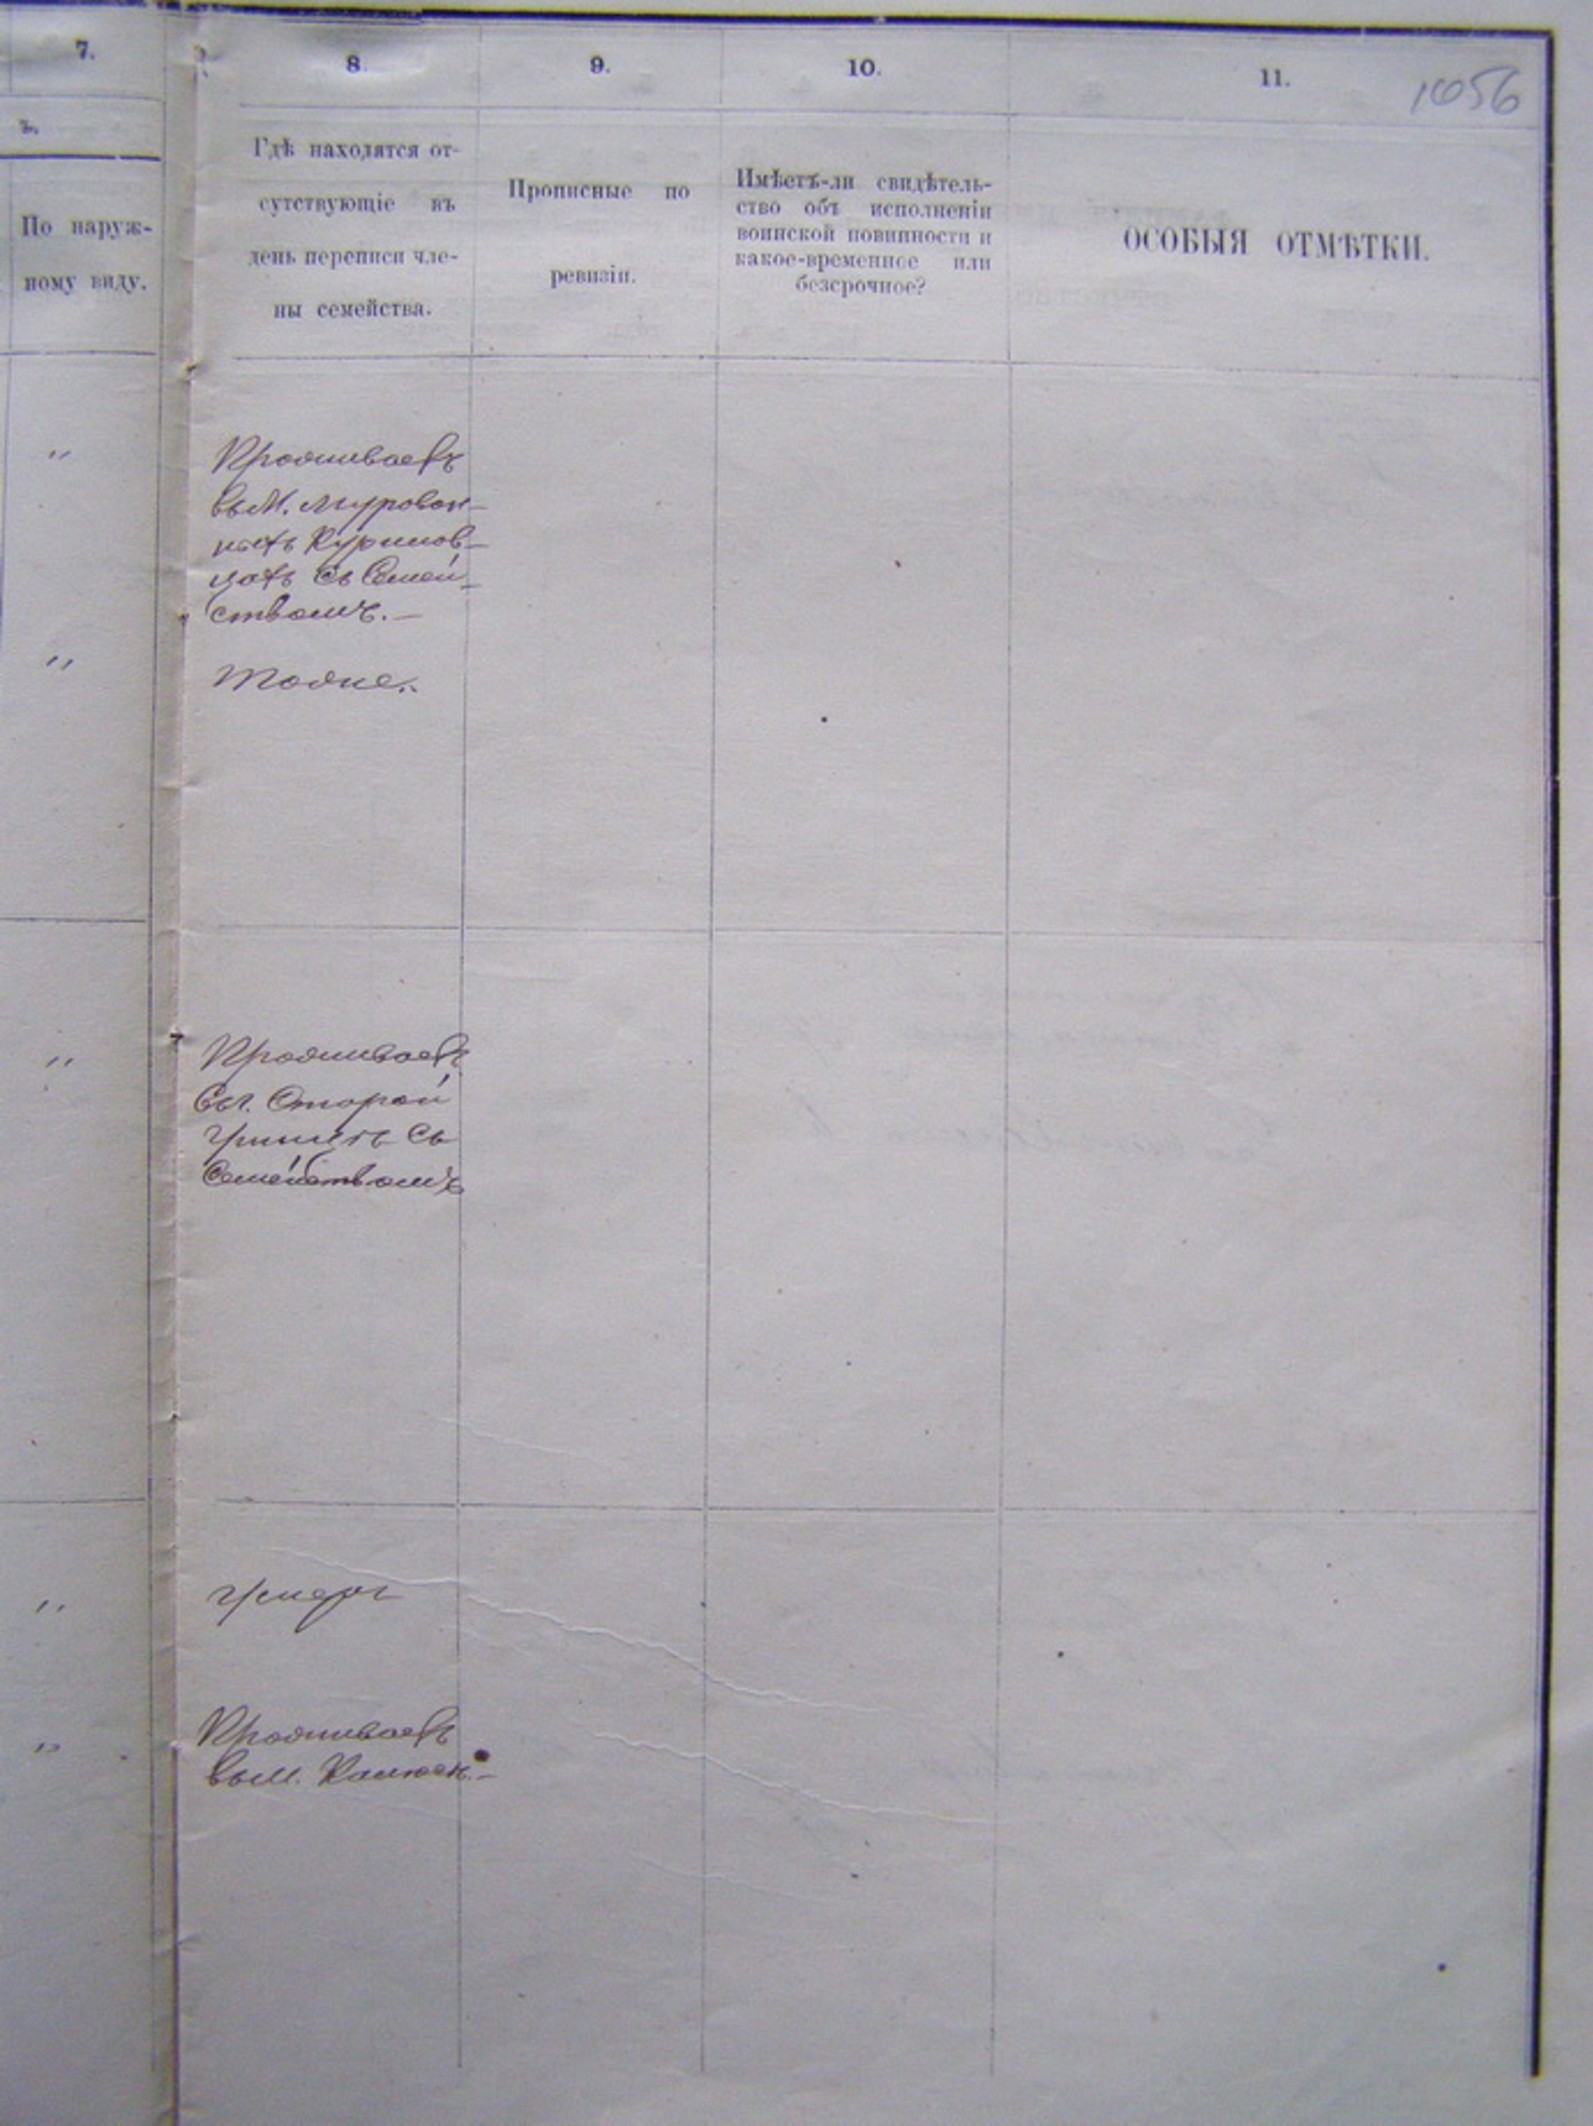 7.
8.
9.
10.
11.
1056
ъ.
По наруж-
ному виду.
Гдѣ находятся от-
сутствующіе въ
день переписи чле-
ны семейства.
Прописные по
ревизіи.
Имѣетъ-ли свидѣтель-
ство объ исполненіи
воинской повинности и
какое-временное или
безсрочное?
ОСОБЫЯ ОТМѢТКИ.
"
Проживаетъ
въ М. Мурован-
ныхъ Курилов-
цахъ съ Семей-
ствомъ.—
"
Тоже.
"
Проживаетъ
въ г. Старой
Ушицѣ съ
Семействомъ
"
Умеръ
"
Проживаетъ
въ М.